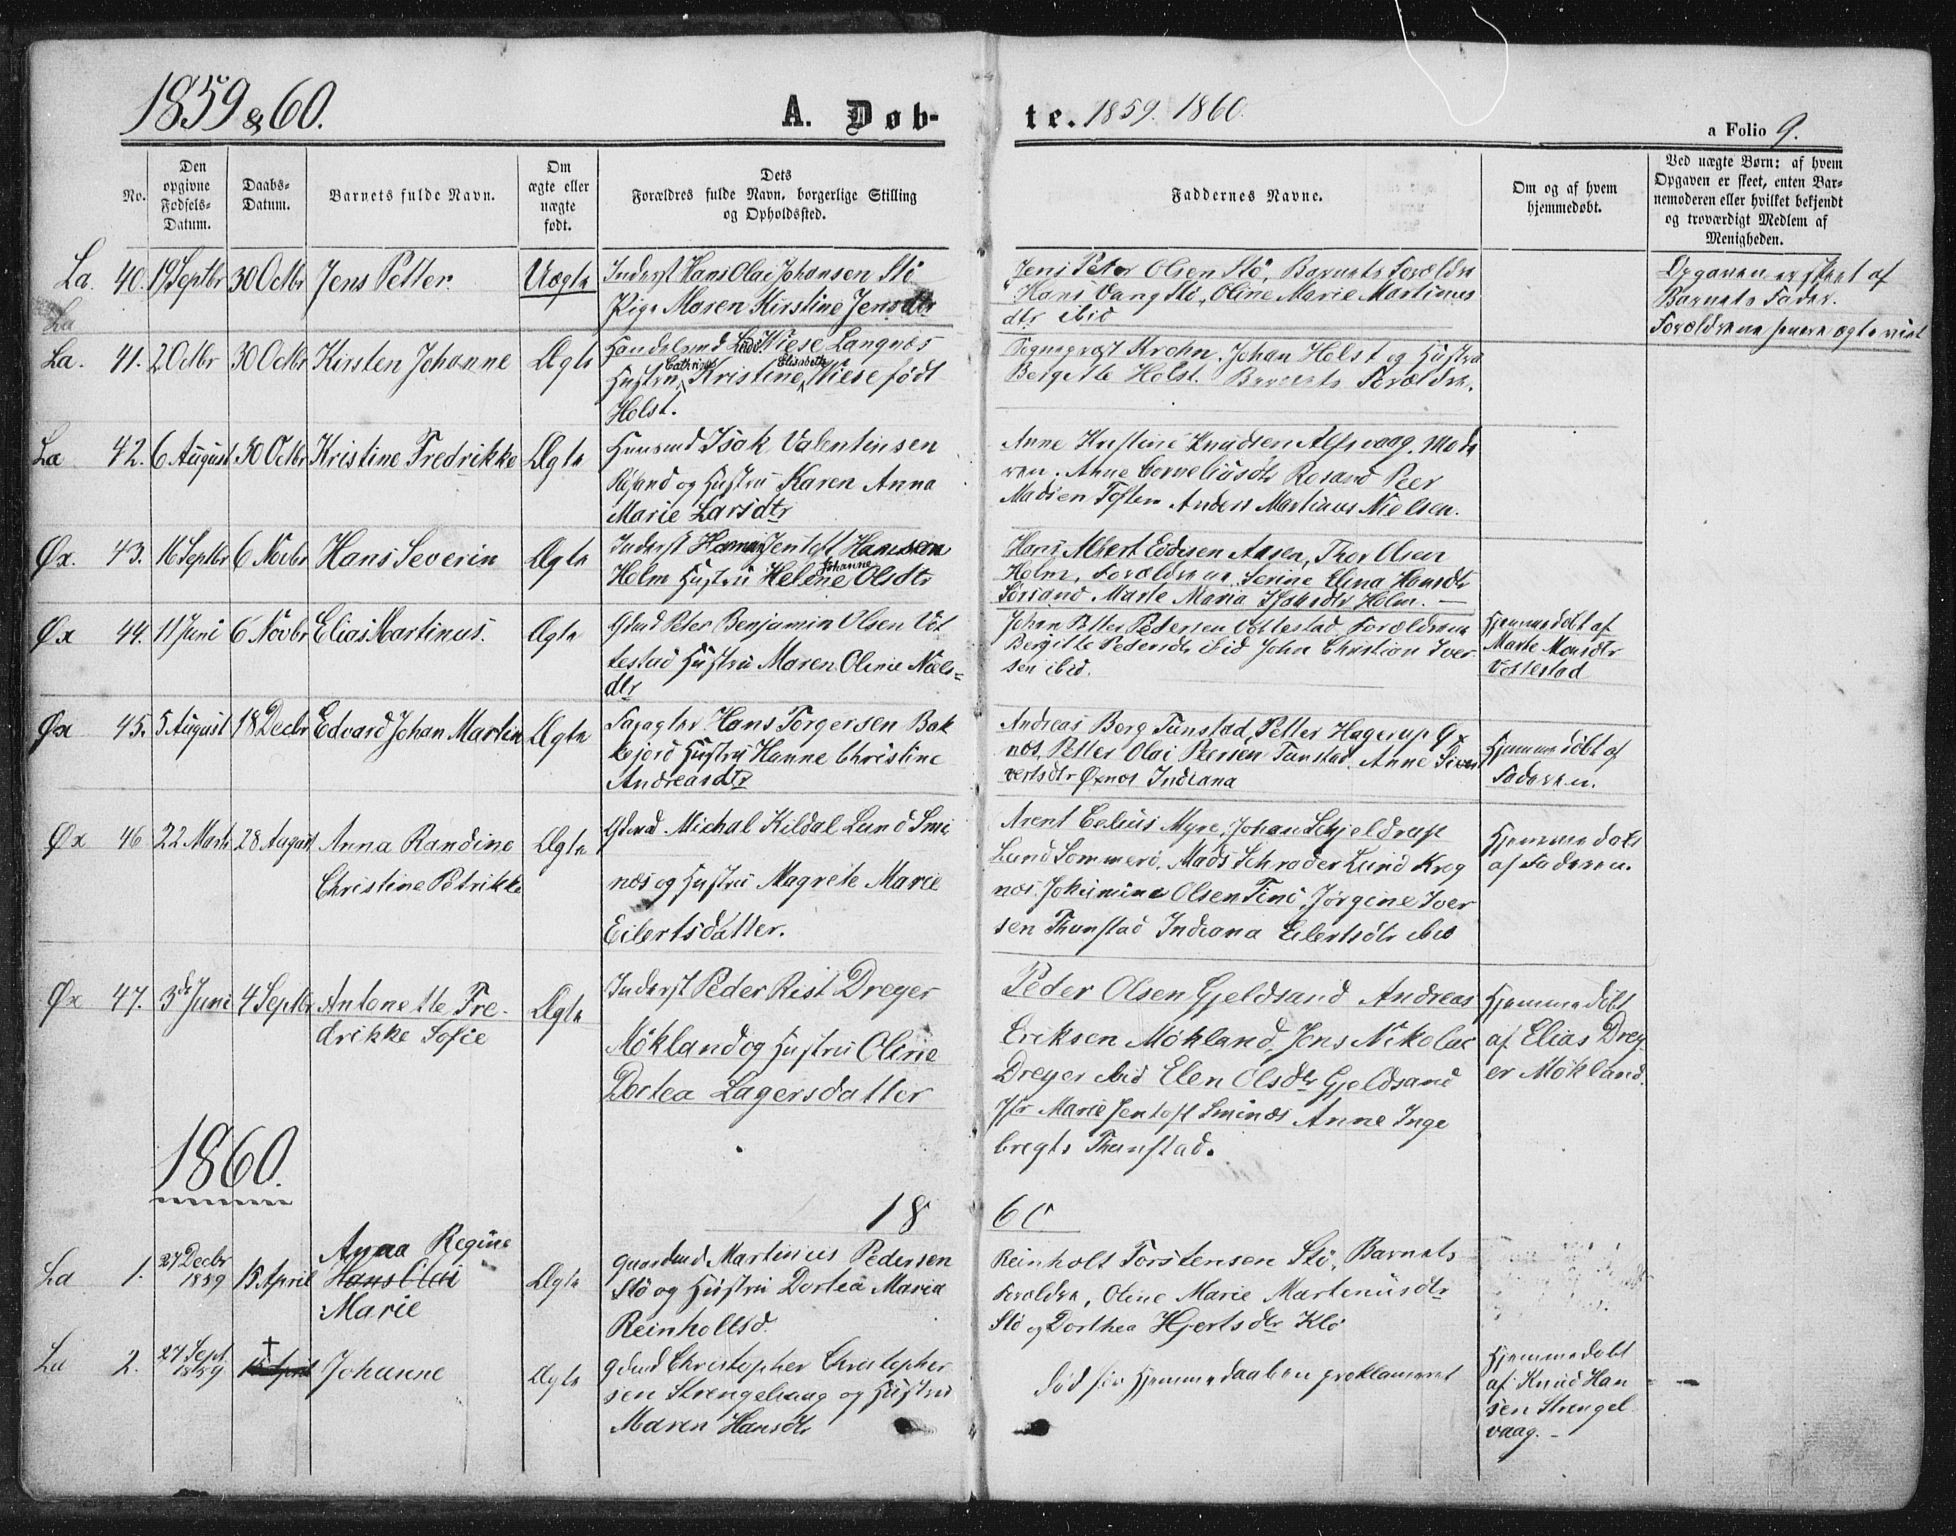 1859 & 60.
A. Døb-
te. 1859. 1860.
a Folio 9.
No.
Den opgivne Fødsels-Datum.
Daabs-Datum.
Barnets fulde Navn.
Om ægte eller uægte født.
Dets Forældres fulde Navn, borgerlige Stilling og Opholdssted.
Faddernes Navne.
Om og af hvem hjemmedøbt.
Ved uægte Børn: af hvem Opgaven er skeet, enten Barnemoderen eller hvilket bekjendt og troværdigt Medlem af Menigheden.
La. 40. 19 Septbr 30 Octbr Jens Petter. Uægte
Inderst Hans Olai Johansen Stø
Pige Maren Kirstine Jensdtr
Jens Peter Olsen Stø, Barnets Forældre
Hans Vang Stø, Oline Marie Martinus
dtr ibid
Opgaven er skeet af
Barnets Fader.
La
La. 41. 2 Octbr 30 Octbr Kirsten Johanne Ægte
Handelsmd Wiese Langnæs
Hustru Cathrine Kristine Elisabeth Wiese født
Holst.
Krohn, Johan Holst og Hustru
Bergitte Holst. Barnets Forældre.
La 42. 6 August 30 Octbr Kristine Fredrikke Ægte
Huusmd Isak Valentinsen
og Hustru Karen Anna
Marie Larsdtr
Anne Kristine Knudsen Alfsvaag, Mode
ren. Anne Corneliusdtr Rosand Peer
Madsen Toften Anders Martinus Nielsen.
Øx. 43. 16 Septbr 6 Novbr Hans Severin Ægte
Inderst Jentoft Hansen
Holm Hustru Helene Johanne Olsdtr
Hans Albert Aasen, Thor Olsen
Holm, Forældrene, Serine Elina Hansdtr
Sørsand, Marte Maria Holm.
Øx 44. 11 Juni 6 Novbr Elias Martinus. Ægte
Gdmd Peter Benjamin Olsen Vot
testad Hustru Maren Oline Niels=
dtr
Johan Petter Pedersen Vottestad Forældrene
Bergitte Pedersdtr ibid John Christian Iver
sen ibid.
Hjemmedøbt af
Marte Monsdtr
Vottestad
Øx 45. 5 August 18 Decbr Edvard Johan Martin Ægte
Hans Torgersen Bak
kejord Hustru Hanne Christine
Andreasdtr
Andreas Berg Tunstad, Petter Hagerup Øx
næs, Petter Olai Peersen Tunstad. Anne Siver
vertsdtr Øxnæs Indiana
Hjemmedøbt af
Faderen.
Øx 46 22 Marts 28 August Anna Randine
Christine Petrikke Ægte
Gdmd Michal Kildal Lund Smi
næs og Hustru Magrete Marie
Eilertsdatter.
Arent Celius Myre, Johan Schjeldrup
Lund Sommerø, Mads Schrøder Lund Kreg
næs, Jokumine Olsen Tinø, Jørgine Iver
sen Thunstad Indiana Eilertsdtr ibid
Hjemmedøbt
af Faderen.
Øx 47. 3de Juni 4 Septbr Antonette Fre-
drikke Sofie Ægte
Inderst Peder Rist Dreyer
Møkland og Hustru Oline
Dortea Lagersdatter
Peder Olsen Gjeldsand Andreas
Eriksen Møkland, Jens Nikolai
Dreyer ibid Elen Olsdtr Gjeldsand
Jfr Marie Jentoft Sminæs Anne Inge
bregts Thunstad.
Hjemmedøbt
af Elias Drey
er Møkland.
1860.
18 60
La 1. 27 Decbr 1859 15 April Anna Regine
Hans Olai
Marie Ægte
Gaardmd Martinus Pedersen
Stø og Hustru Dortea Maria
Reinholtsd.
Reinholt Torstensen Stø, Barnets
Forældre, Oline Marie Martinusdtr
Stø og Dorthea Hjertsdtr Klø
La 2. 27 Sept 1859 † 15 April Johanne Ægte
Gdmd Christopher Christopher
sen Strengelvaag og Hustru
Maren Hansdtr
Død før Hjemmedaaben proklameret
Hjemmedøbt
af Knud Han
sen Strengel
vaag.